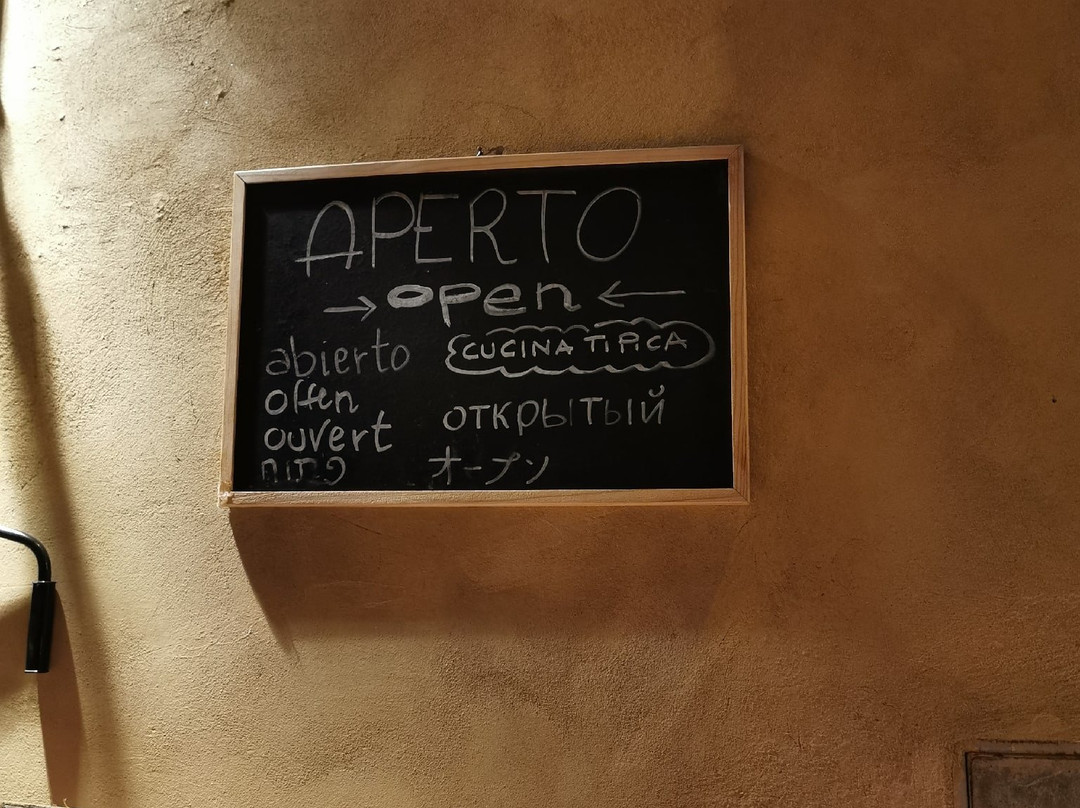 APERTO
→ open ←
abierto
CUCINA TIPICA
offen
ouvert
открытый
פתוח
オープン